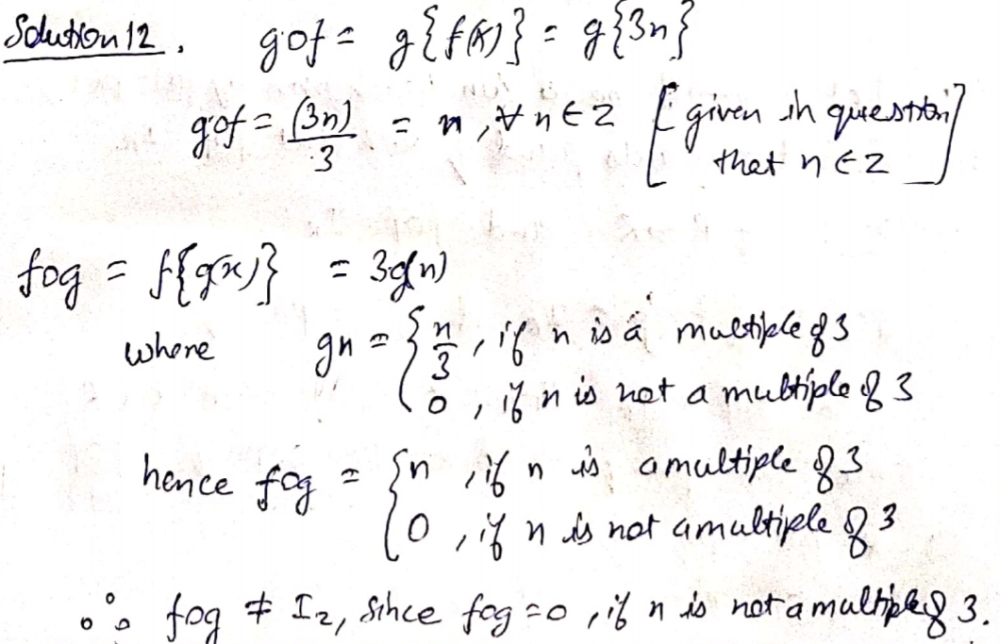 Solution 12. gof = g{f(x)} = g{3n}
gof = (3n)/3 = n, ∀ n ∈ Z [given in question that n ∈ Z]
fog = f{g(x)} = 3g(n)
where gn = { n/3, if n is a multiple of 3
0, if n is not a multiple of 3
hence fog = { n, if n is a multiple of 3
0, if n is not a multiple of 3
∴ fog ≠ I_Z, Since fog = 0, if n is not a multiple of 3.